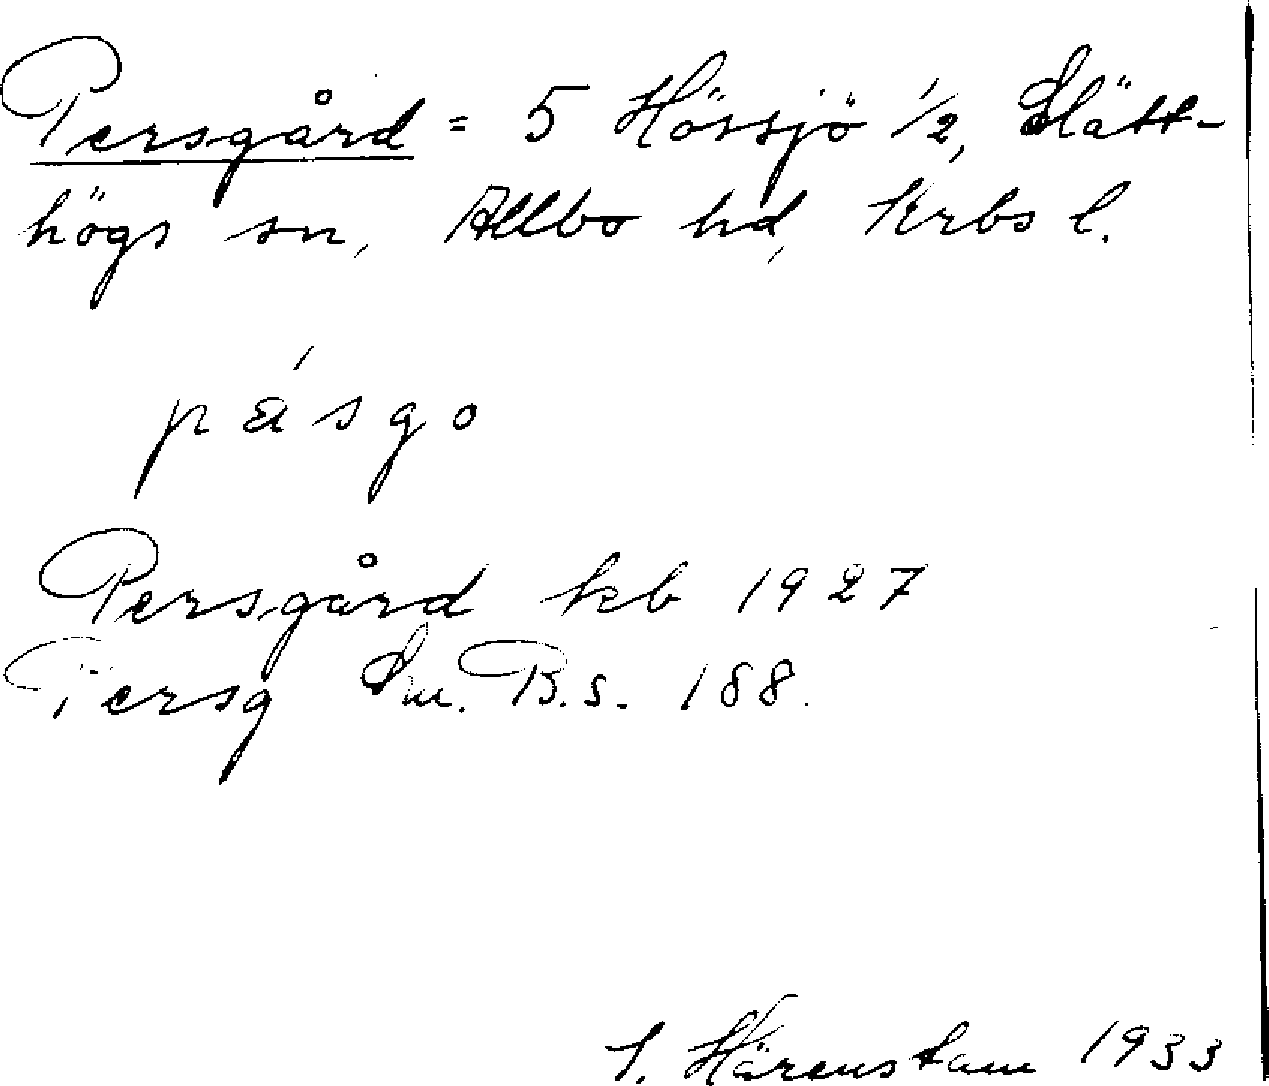 Persgård = 5 Hössjö 1/2, Slätt-
högs sn, Allbo hd, Krbs l.
pásgo
Persgård kb 1927
Persg Sm. B.s. 188.
Härenstam 1933